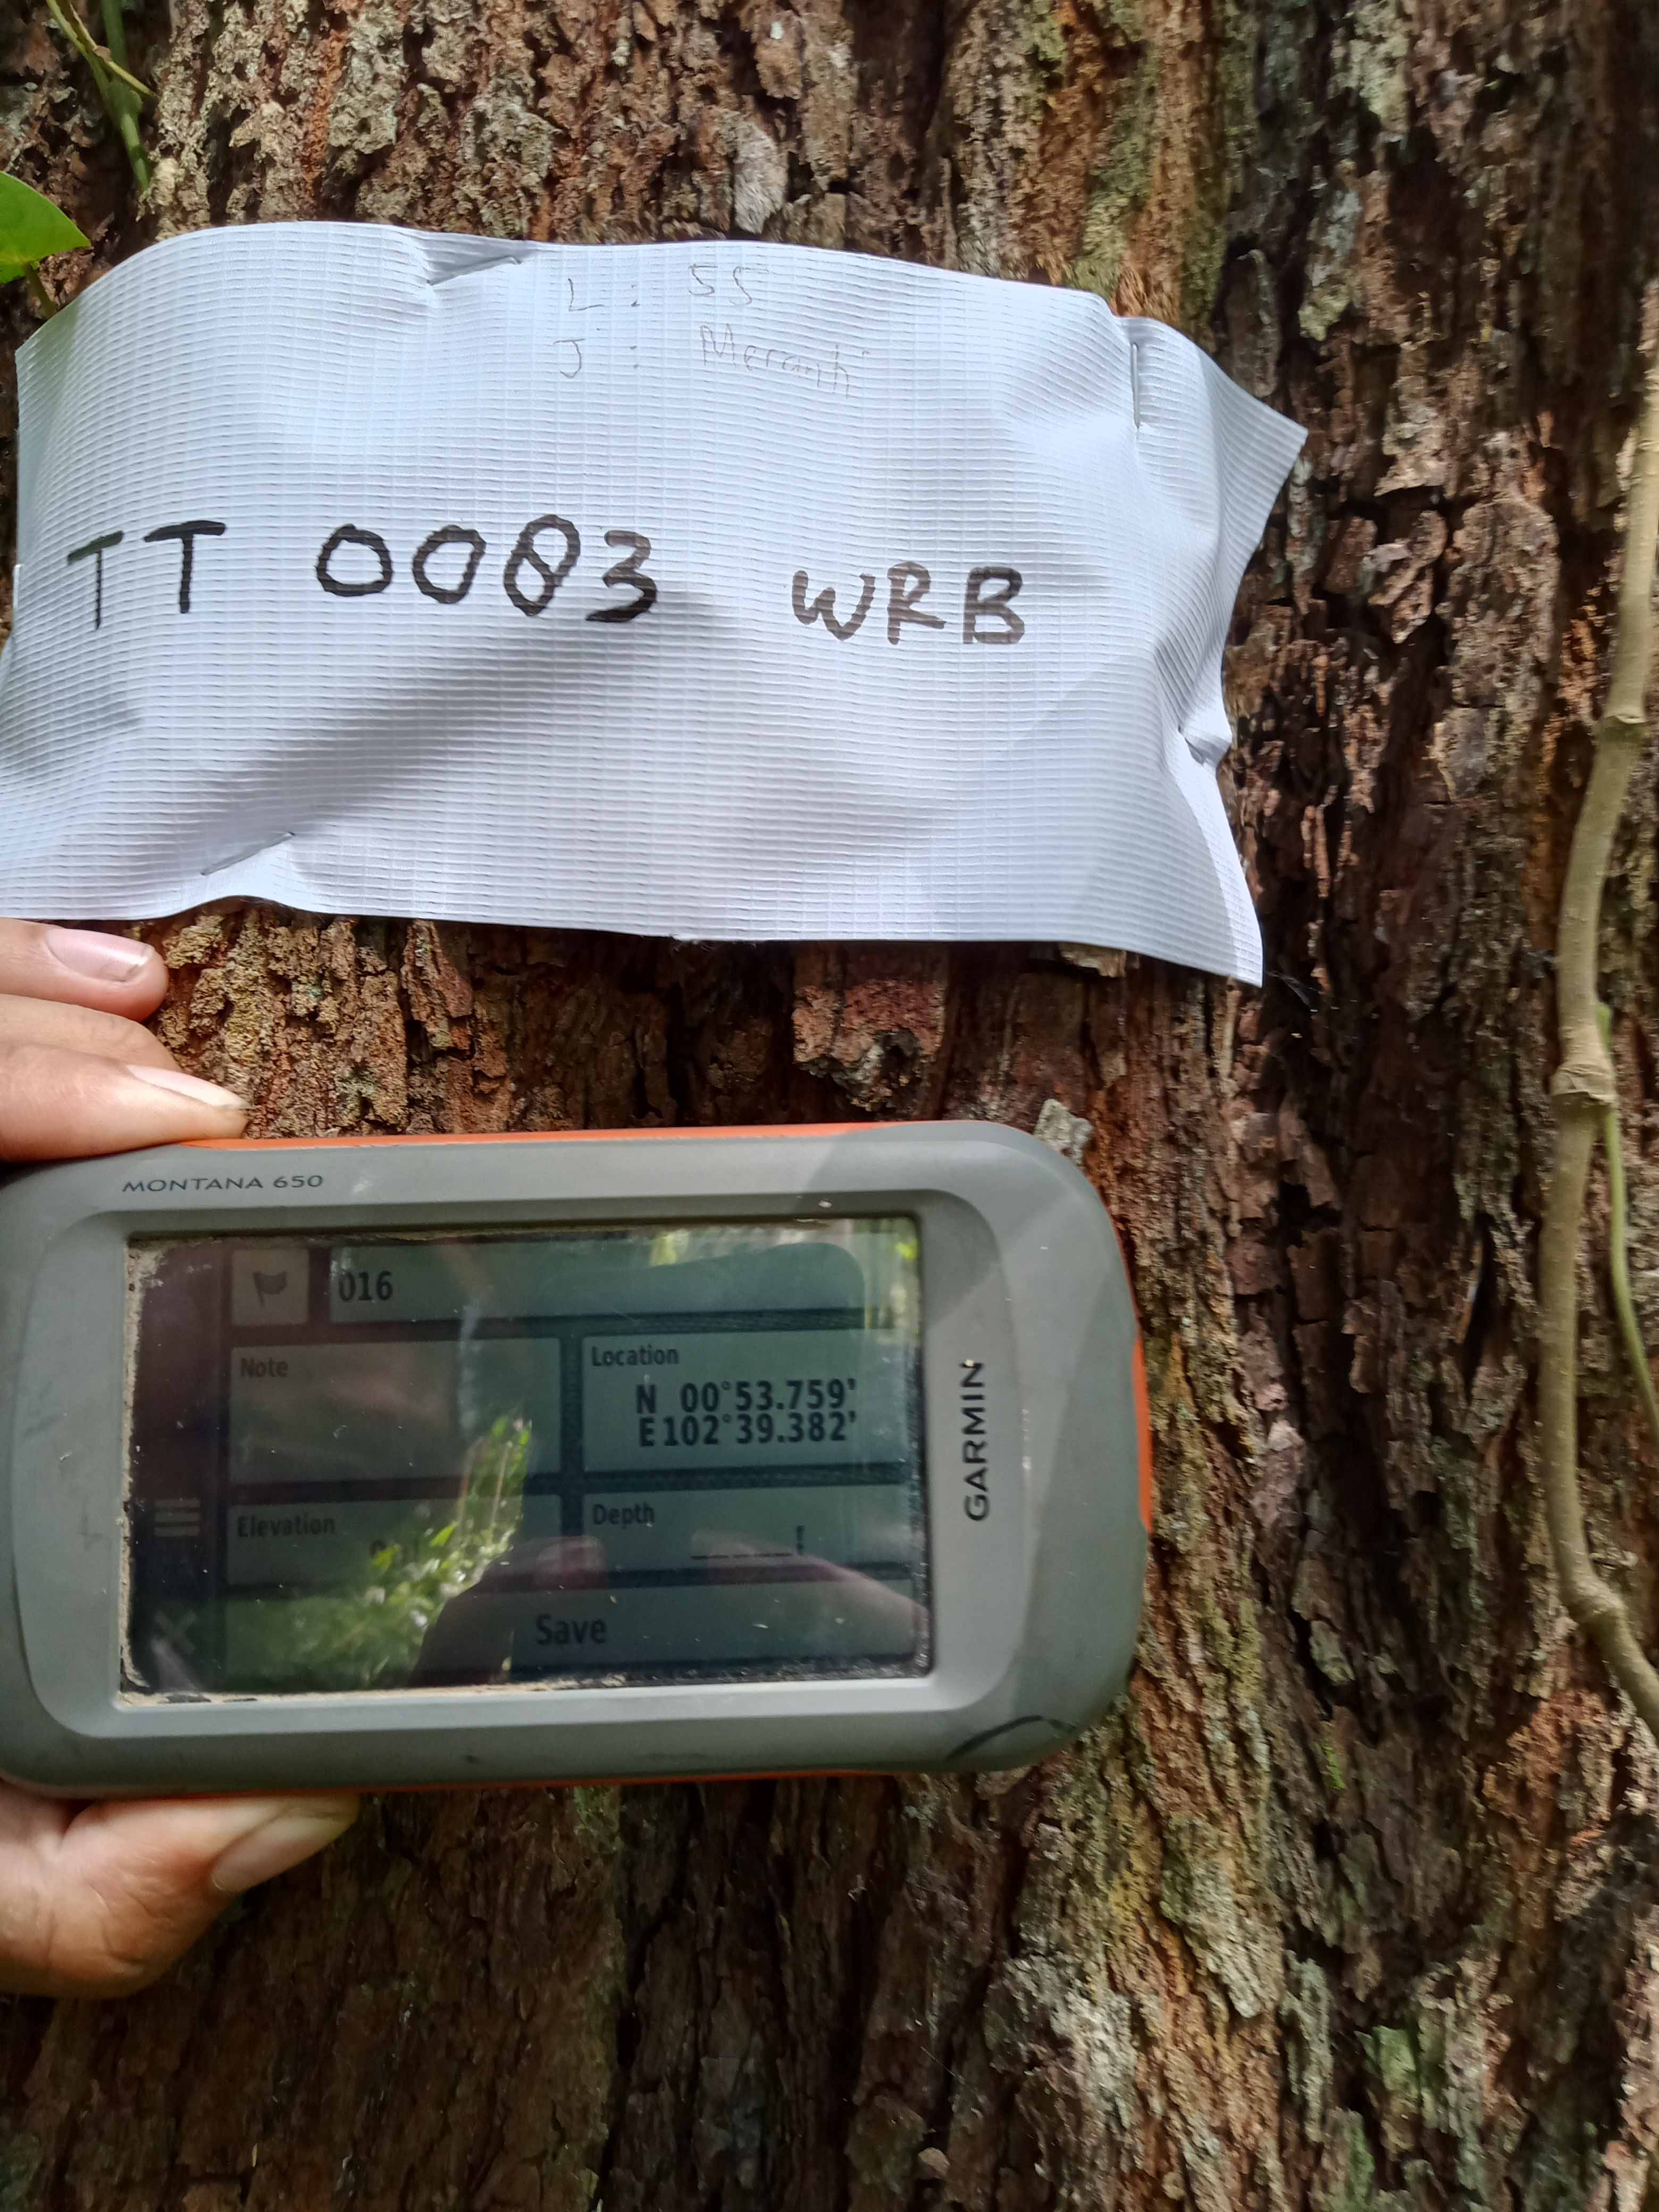 L : 55
J : Meranti
TT 0083 WRB
MONTANA 650
016
Note
Location
N 00°53.759'
E 102°39.382'
Elevation
Depth
Save
GARMIN